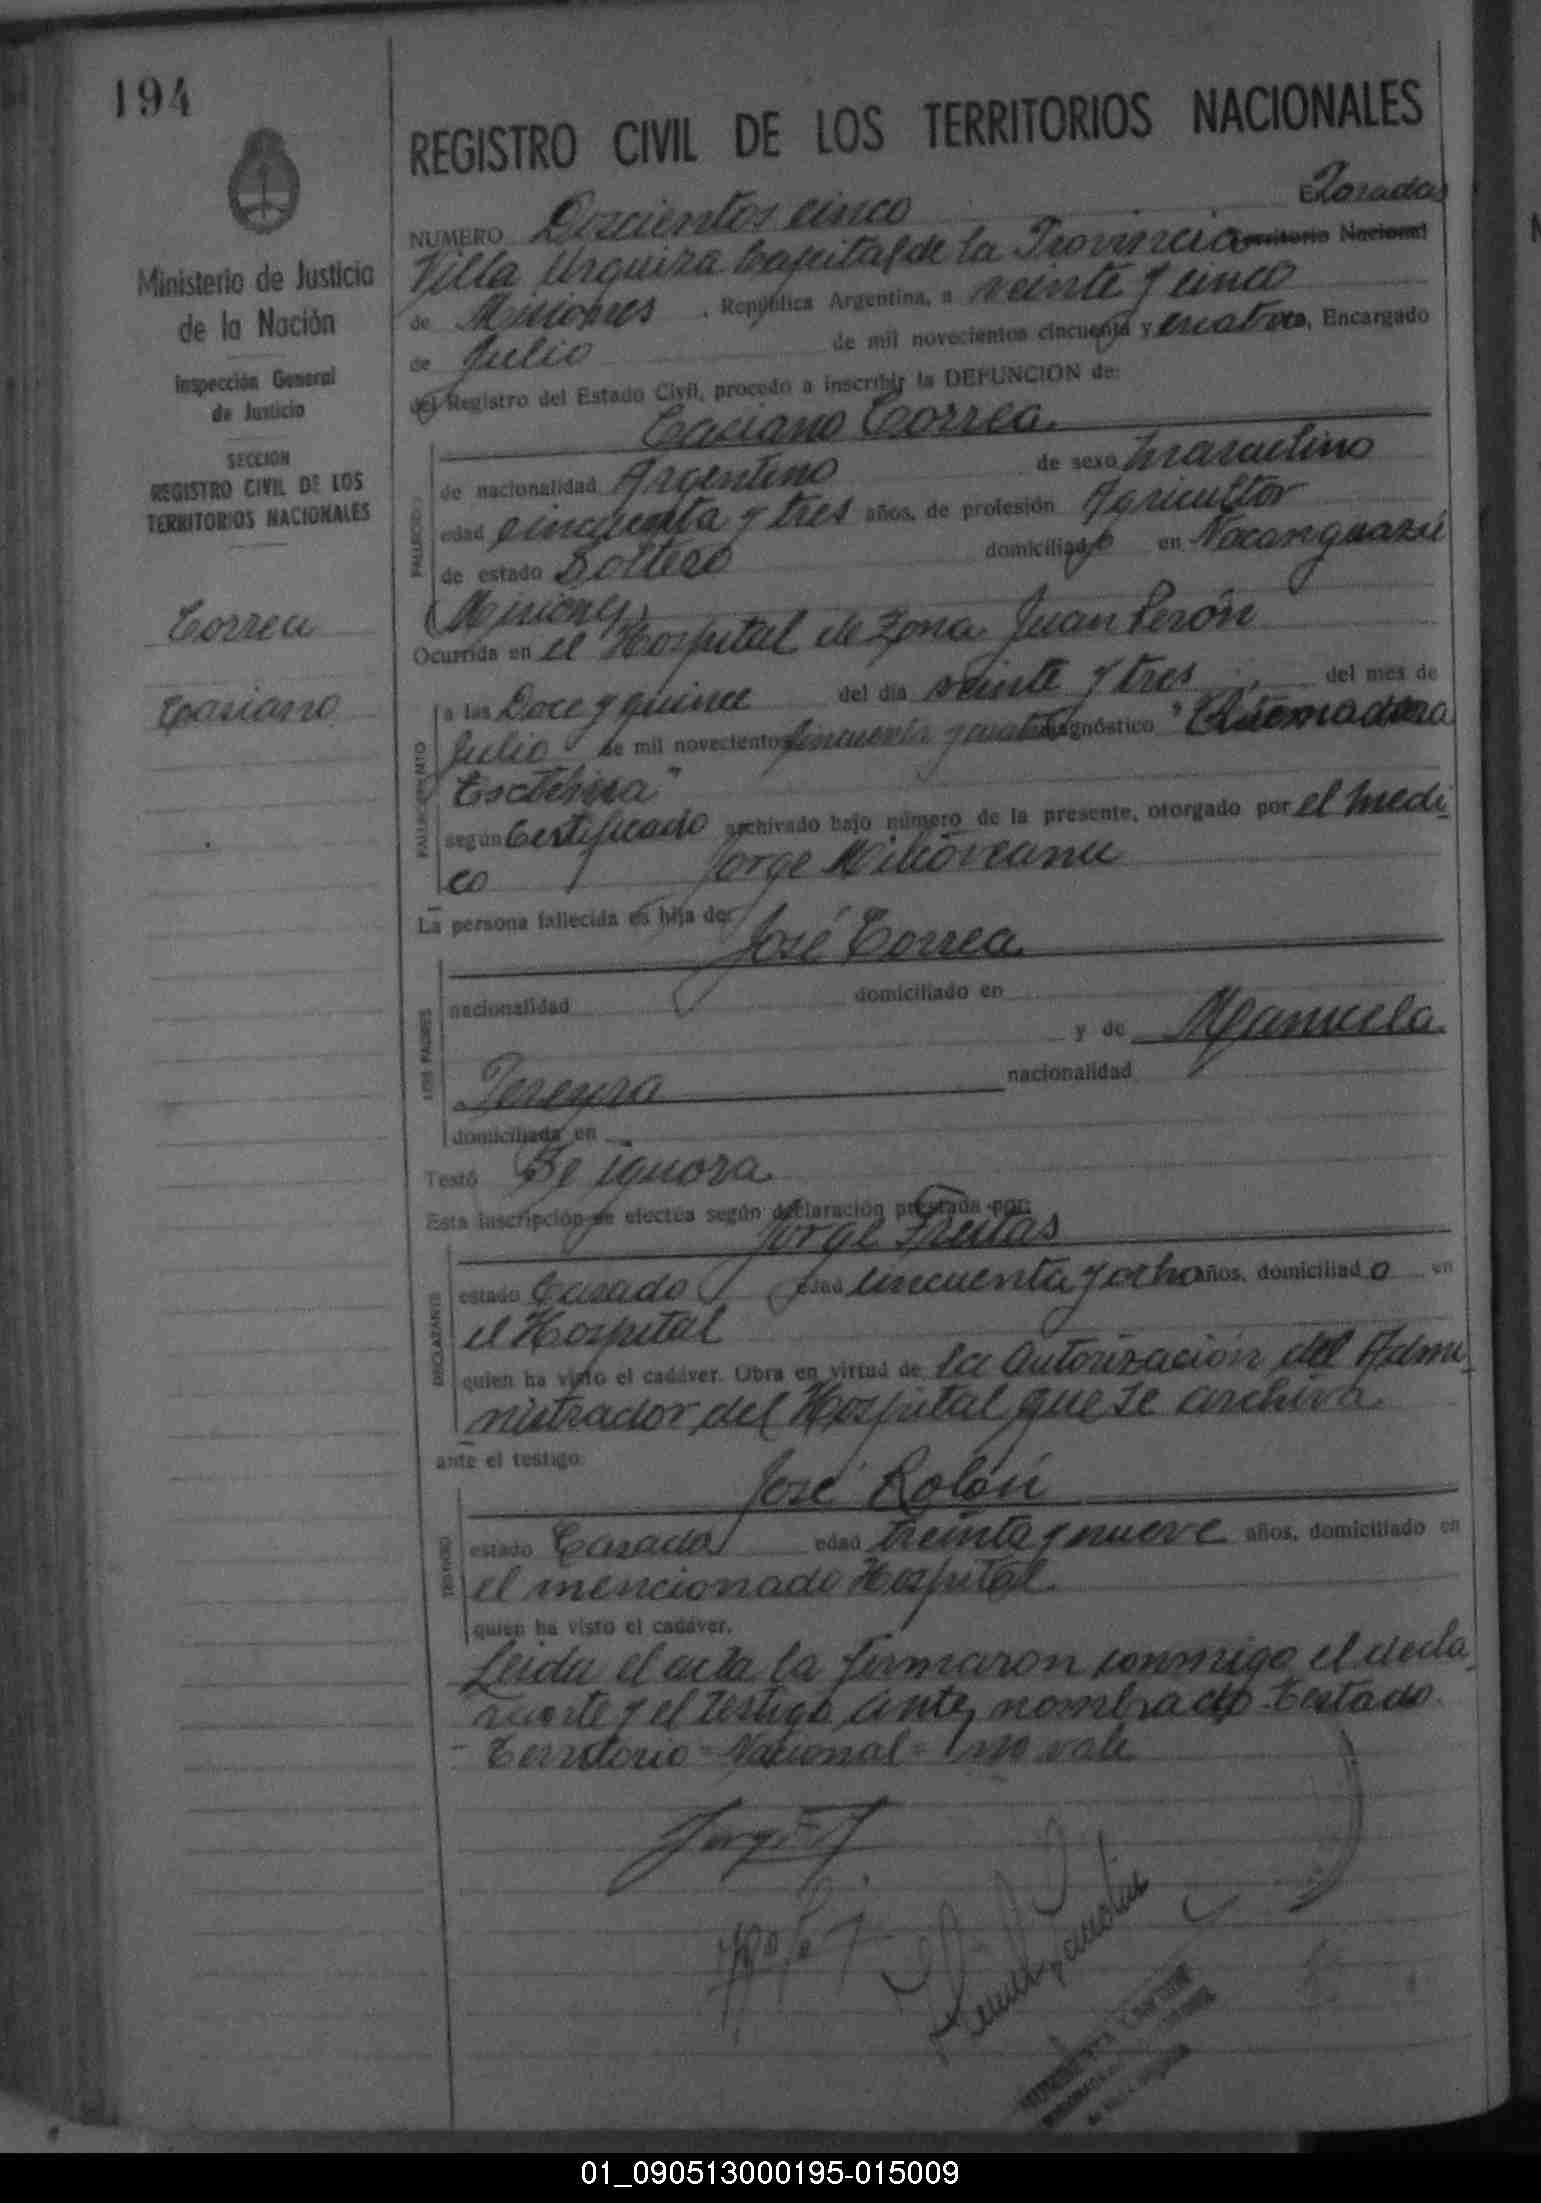 194
REGISTRO CIVIL DE LOS TERRITORIOS NACIONALES
Ministerio de Justicia
de la Nación
Inspección General
de Justicia
SECCION
REGISTRO CIVIL DE LOS
TERRITORIOS NACIONALES
Correa
Casiano
NUMERO Doscientos cinco E Posadas
Villa Urquiza Capital de la Provincia Territorio Nacional
de Misiones, República Argentina, a veinte y cinco
de Julio de mil novecientos cincuenta y cuatro, Encargado
del Registro del Estado Civil, procedo a inscribir la DEFUNCION de:
Casiano Correa
FALLECIDO
de nacionalidad Argentino de sexo masculino
edad cincuenta y tres años, de profesión Agricultor
de estado Soltero domiciliado en Ñacanguazú
(Misiones)
Ocurrida en el Hospital de Zona Juan Perón
FALLECIMIENTO
a las Doce y quince del día veinte y tres del mes de
Julio de mil novecientos cincuenta y cuatro diagnóstico "Quemadura
"
según Certificado archivado bajo número de la presente, otorgado por el medi-
co Jorge
La persona fallecida es hija de:
José Correa
LOS PADRES
nacionalidad domiciliado en
y de Manuela
Pereyra nacionalidad
domiciliada en
Testó Se ignora
Esta inscripción se efectúa según declaración prestada por:
Jorge Freitas
DECLARANTE
estado Casado edad cincuenta y ocho años, domiciliado en
el Hospital
quien ha visto el cadáver. Obra en virtud de la autorización del Admi-
nistrador del Hospital que se archiva
ante el testigo:
José Rolón
TESTIGO
estado Casado edad treinta y nueve años, domiciliado en
el mencionado Hospital
quien ha visto el cadáver.
Leida el acta la firmaron conmigo el decla-
rante y el testigo antes nombrado Testado
- Territorio - Nacional - no vale
01_090513000195-015009